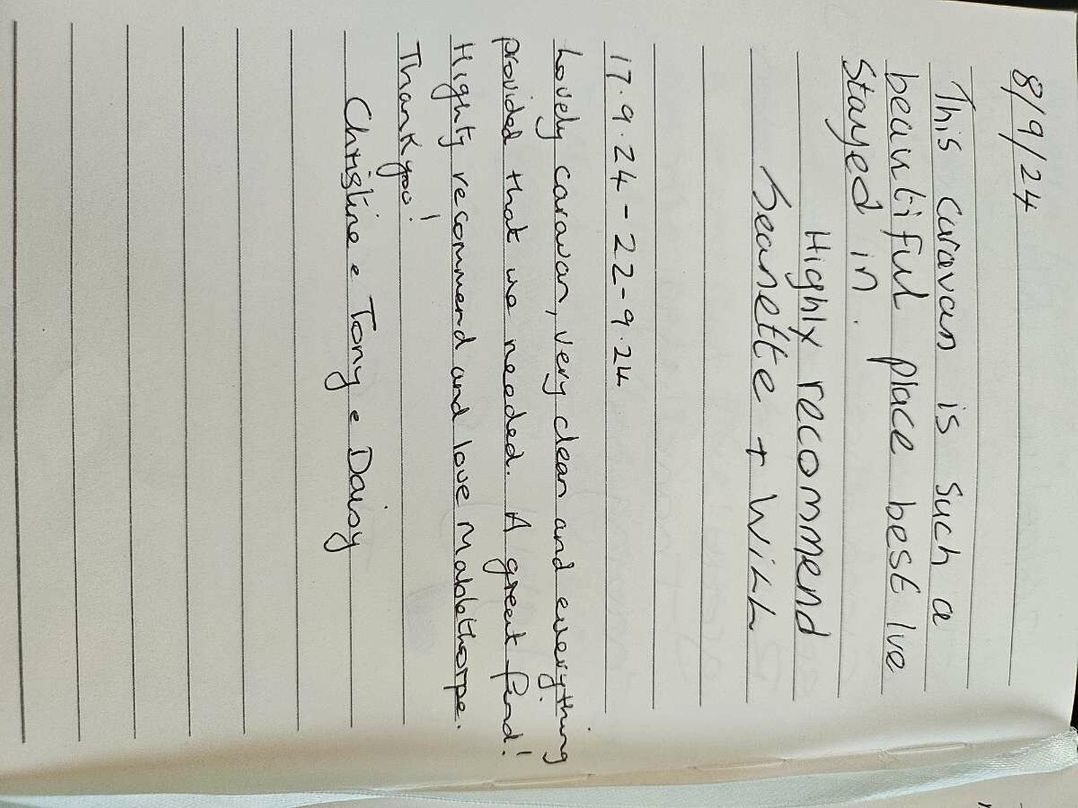 8/9/24
This caravan is such a
beautiful place best Ive
Stayed in.
Highly recommend
Jeanette + Will
17.9.24 - 22-9.24
Lovely caravan, very clean and everything
provided that we needed. A great find!
Highly recommend and love Mablethorpe.
Thankyou!
Christine e Tony e Daisy